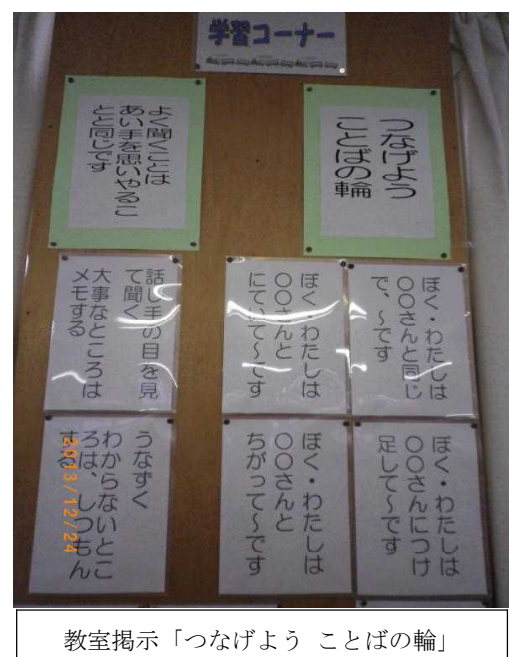 学習コーナー
つなげよう
ことばの輪
よく聞くことは
あい手を思いやるこ
とと同じです
ぼく・わたしは
〇〇さんと同じ
で、~です
ぼく・わたしは
〇〇さんと
にていて~です
話し手の目を見
て聞く
大事なところは
メモする
ぼく・わたしは
〇〇さんにつけ
足して~です
ぼく・わたしは
〇〇さんと
ちがって~です
うなずく
わからないとこ
ろは、しつもん
する
2013/12/24
教室掲示「つなげよう ことばの輪」